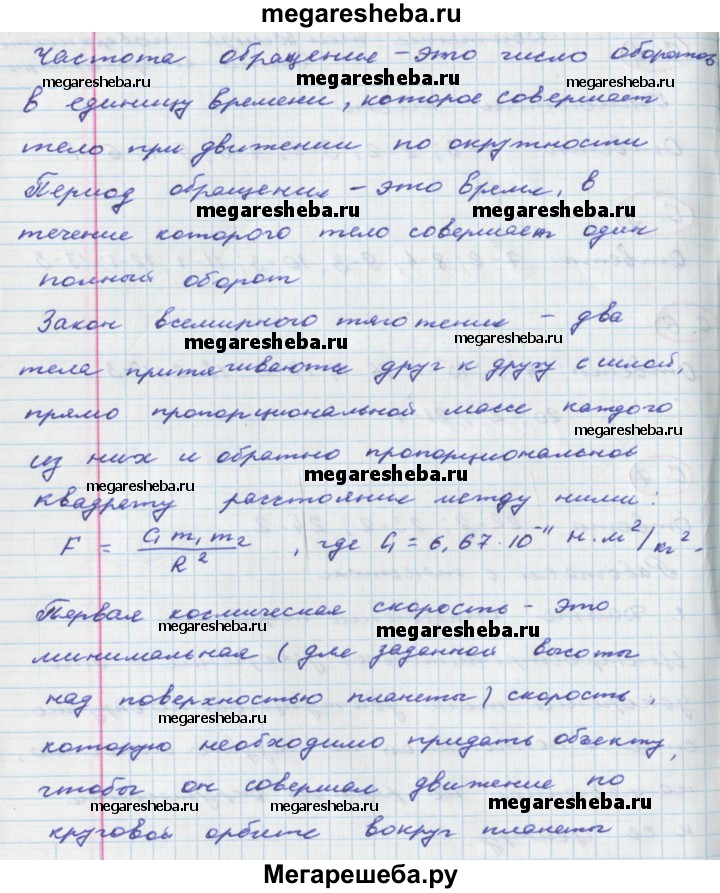 megaresheba.ru
Частота обращение – это число оборотов
megaresheba.ru megaresheba.ru megaresheba.ru
в единицу времени, которое совершает
тело при движении по окружности
Период обращения – это время, в
megaresheba.ru megaresheba.ru
течение которого тело совершает один
полный оборот
Закон всемирного тяготения – два
megaresheba.ru megaresheba.ru
тела притягиваются друг к другу с силой,
прямо пропорциональной массе каждого
megaresheba.ru
из них и обратно пропорциональной
megaresheba.ru megaresheba.ru
квадрату расстояние между ними:
F = G m₁ m₂ / R², где G = 6,67·10⁻¹¹ Н·м²/кг².
Первая космическая скорость – это
megaresheba.ru megaresheba.ru
минимальная (для заданной высоты
над поверхностью планеты) скорость,
megaresheba.ru
которую необходимо придать объекту,
чтобы он совершал движение по
megaresheba.ru megaresheba.ru megaresheba.ru
круговой орбите вокруг планеты
Мегарешеба.ру